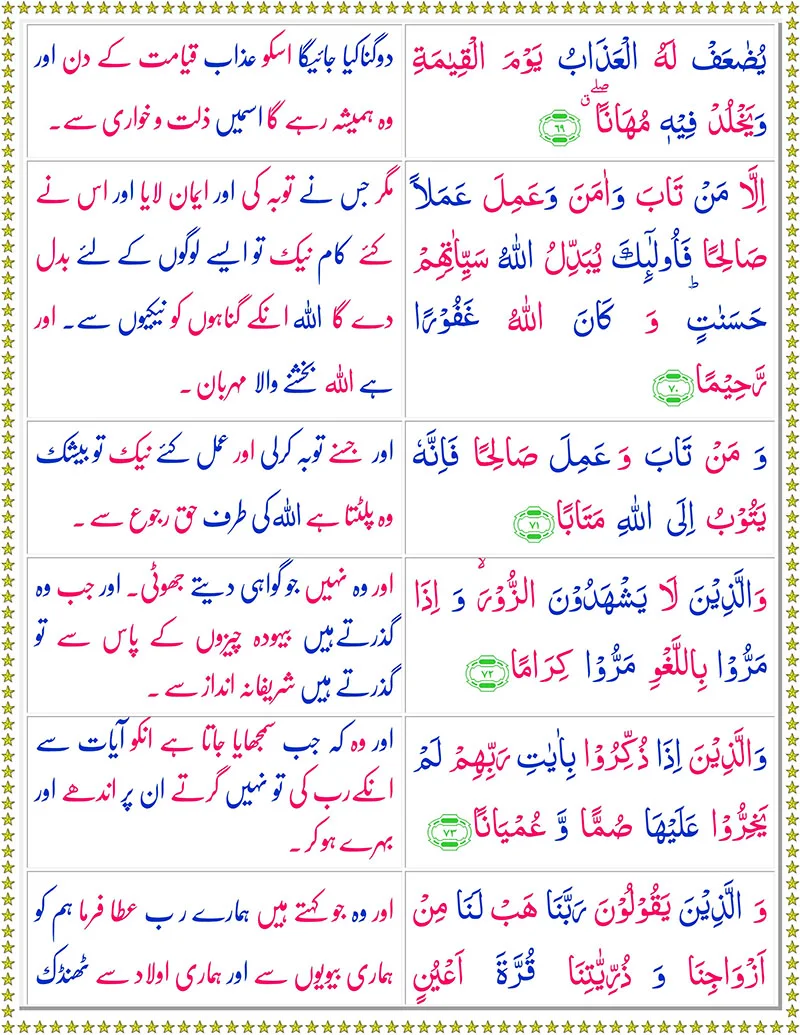 یُّضٰعَفْ لَهُ الْعَذَابُ یَوْمَ الْقِیٰمَةِ
وَیَخْلُدْ فِیْهٖ مُهَانًا ۗۖ ﴿۶۹﴾
دوگنا کیا جائیگا اسکو عذاب قیامت کے دن اور
وہ ہمیشہ رہے گا اسمیں ذلت و خواری سے۔
اِلَّا مَنْ تَابَ وَاٰمَنَ وَعَمِلَ عَمَلاً
صَالِحًا فَاُولٰٓئِكَ یُبَدِّلُ اللّٰهُ سَیِّاٰتِهِمْ
حَسَنٰتٍ ؕ وَ كَانَ اللّٰهُ غَفُوْرًا
رَّحِیْمًا ﴿۷۰﴾
مگر جس نے توبہ کی اور ایمان لایا اور اس نے
کئے کام نیک تو ایسے لوگوں کے لئے بدل
دے گا اللہ انکے گناہوں کو نیکیوں سے۔ اور
ہے اللہ بخشنے والا مہربان ۔
وَ مَنْ تَابَ وَ عَمِلَ صَالِحًا فَاِنَّهٗ
یَتُوْبُ اِلَی اللّٰهِ مَتَابًا ﴿۷۱﴾
اور جسنے توبہ کرلی اور عمل کئے نیک تو بیشک
وہ پلٹتا ہے اللہ کی طرف حق رجوع سے ۔
وَالَّذِیْنَ لَا یَشْهَدُوْنَ الزُّوْرَ ۙ وَ اِذَا
مَرُّوْا بِاللَّغْوِ مَرُّوْا كِرَامًا ﴿۷۲﴾
اور وہ نہیں جو گواہی دیتے جھوٹی۔ اور جب وہ
گذرتے ہیں بیہودہ چیزوں کے پاس سے تو
گذرتے ہیں شریفانہ انداز سے ۔
وَالَّذِیْنَ اِذَا ذُكِّرُوْا بِاٰیٰتِ رَبِّهِمْ لَمْ
یَخِرُّوْا عَلَیْهَا صُمًّا وَّ عُمْیَانًا ﴿۷۳﴾
اور وہ کہ جب سمجھایا جاتا ہے انکو آیات سے
انکے رب کی تو نہیں گرتے ان پر اندھے اور
بہرے ہو کر ۔
وَ الَّذِیْنَ یَقُوْلُوْنَ رَبَّنَا هَبْ لَنَا مِنْ
اَزْوَاجِنَا وَ ذُرِّیّٰتِنَا قُرَّةَ اَعْیُنٍ
اور وہ جو کہتے ہیں ہمارے رب عطا فرما ہم کو
ہماری بیویوں سے اور ہماری اولاد سے ٹھنڈک